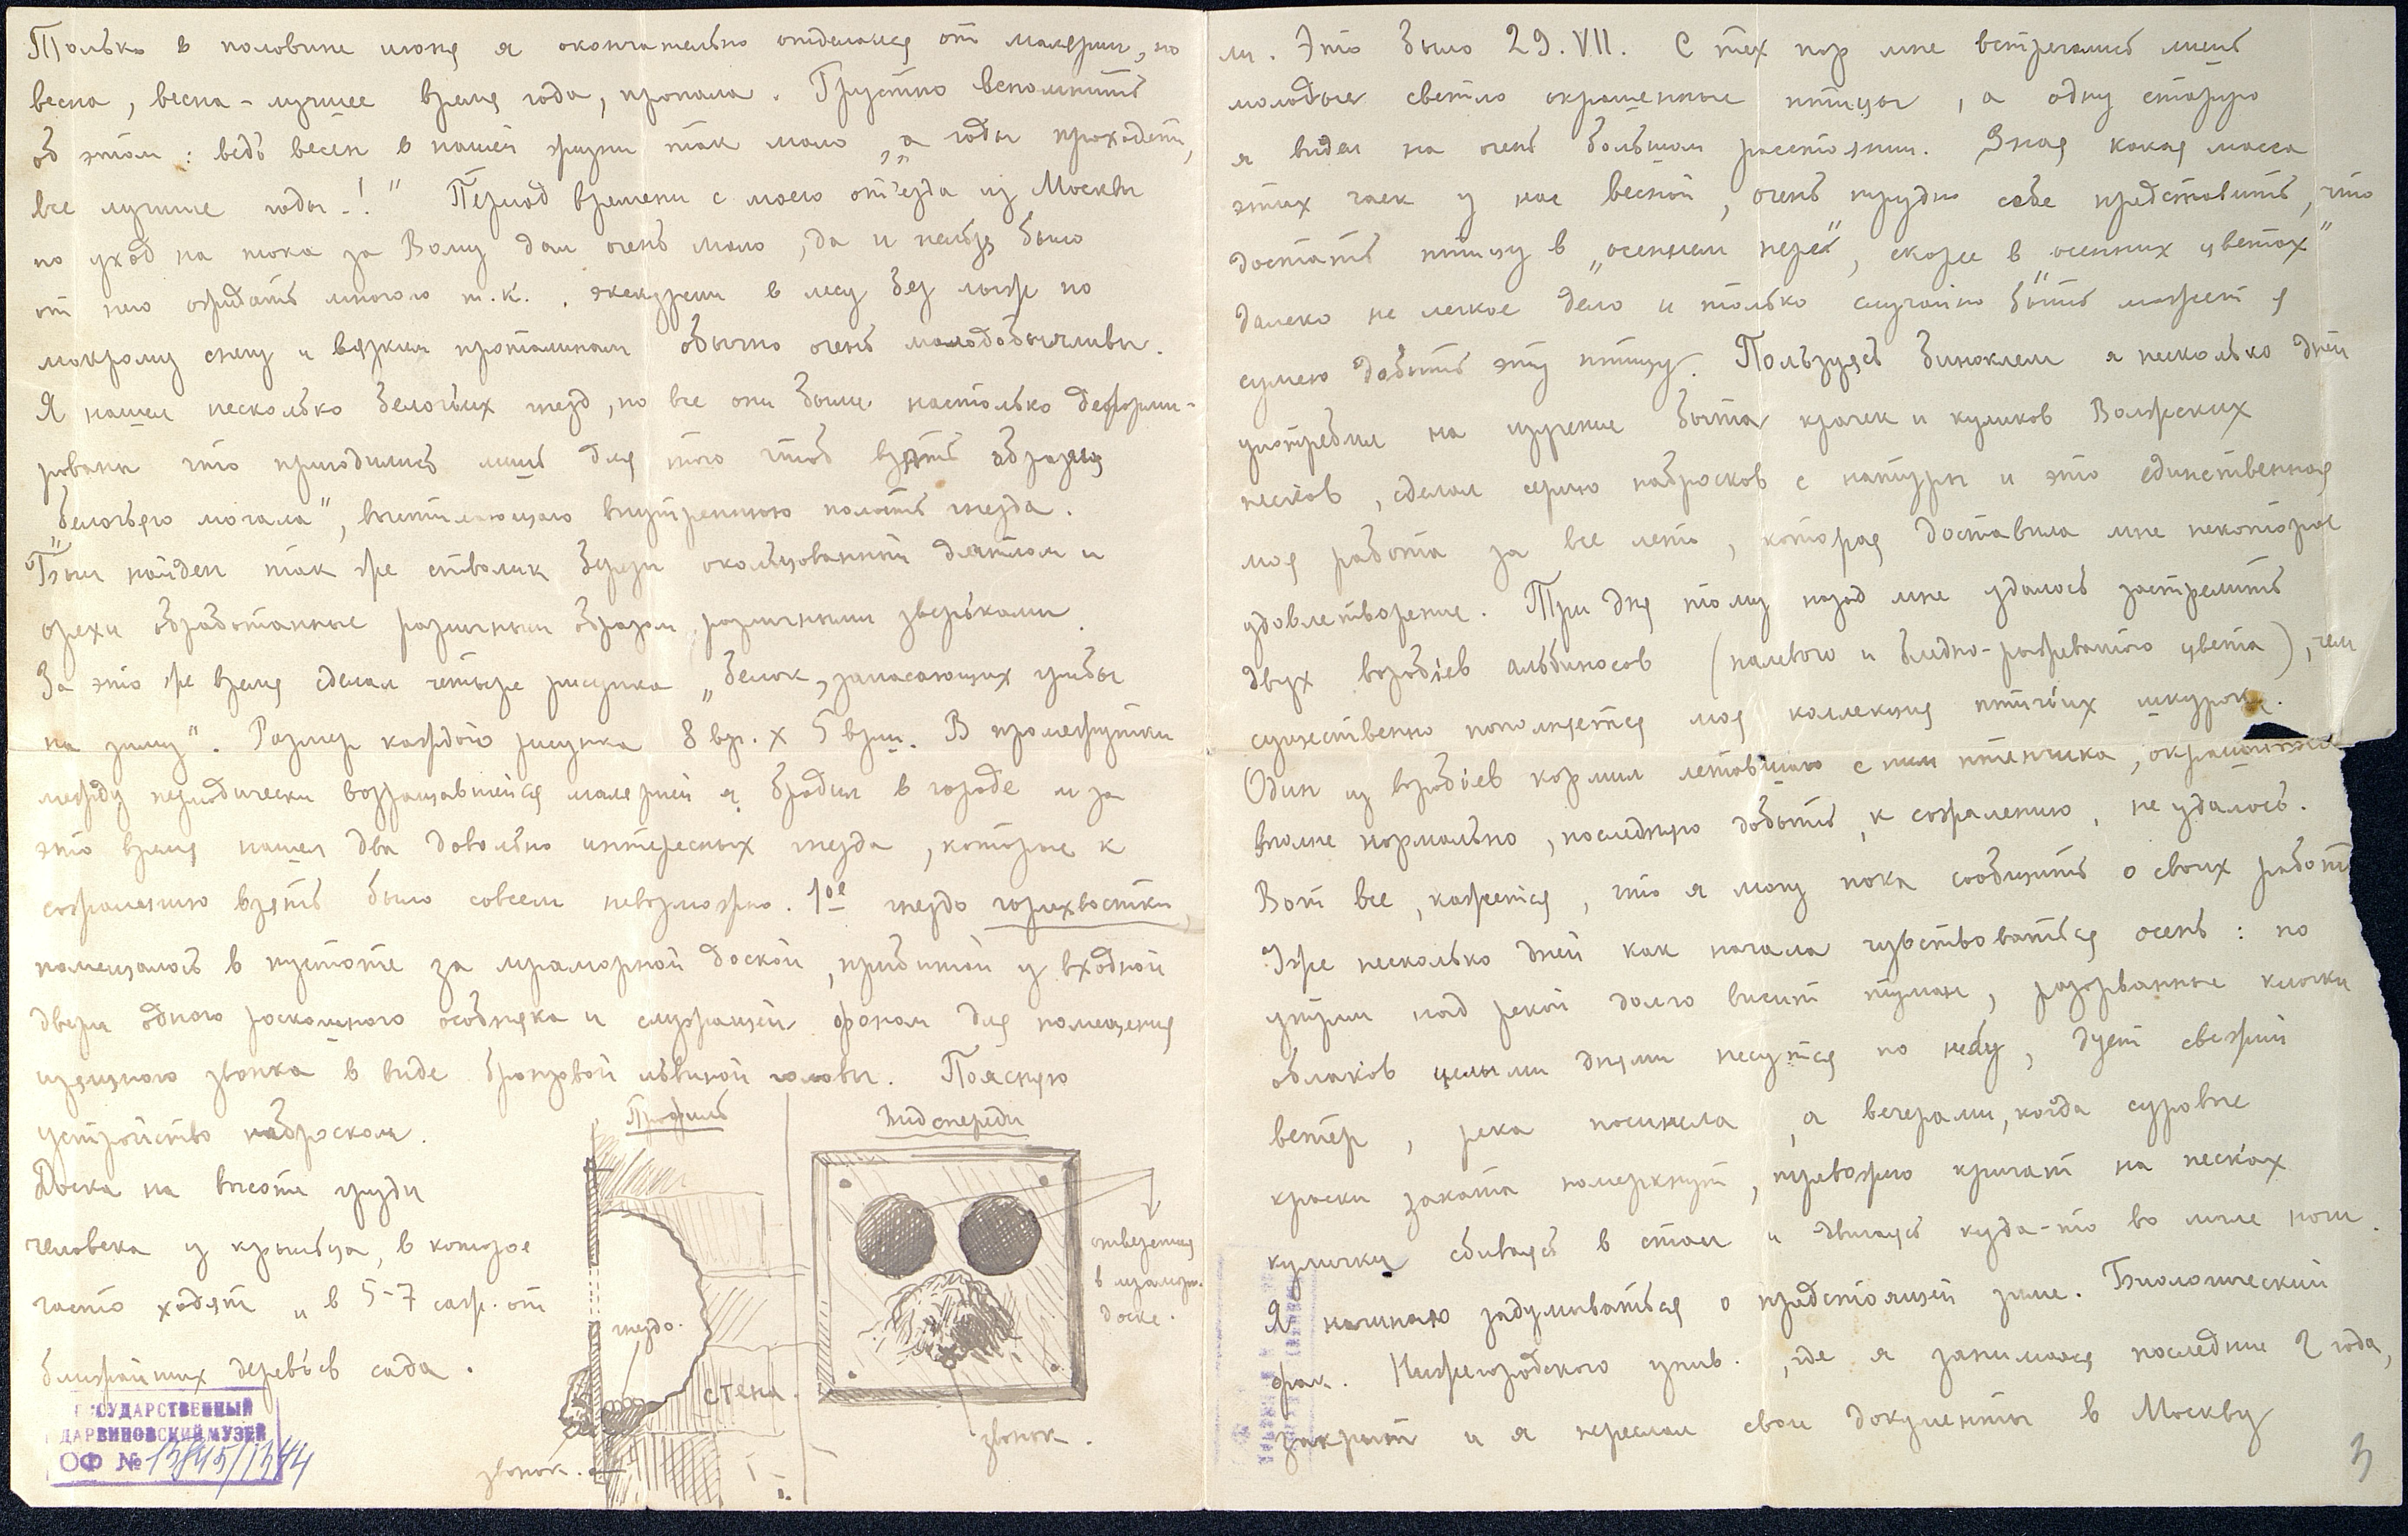 Только в половине июня я окончательно отделался от малярии, но
весна, весна - лучшее время года, пропала. Грустно вспомнить
об этом: ведь весен в нашей жизни так мало, „а годы проходят,
все лучшие годы-!" Период времени с моего от'езда из Москвы
по уход на тока за Волгу дал очень мало, да и нельзя было
от него ожидать многого т.к. экскурсии в лесу без лыж по
мокрому снегу и вязким проталинам обычно очень малодобычливы.
Я нашел несколько беличьих гнезд, но все они были настолько деформи-
рованы что пригодились лишь для того чтоб взять образец
„беличьяго мочала", выстилающаго внутреннюю полость гнезда.
Был найден так же стволик березы окольцованный дятлом и
орехи обработанные различным образом различными зверьками.
За это же время сделал четыре рисунка „белок, запасающих грибы
на зиму". Размер каждого рисунка 8 вер. x 5 верш. В промежутки
между периодически возращавшейся малярией я бродил в городе и за
это время нашел два довольно интересных гнезда, которые к
сожалению взять было совсем невозможно. 1ое гнездо горихвостки,
помещалось в пустоте за мраморной доской, прибитой у входной
двери одного роскошного особняка и служащей фоном для помещения
изящного звонка в виде бронзовой львиной головы. Поясняю
устройство наброском.
Доска на высоте груди
человека у крыльца, в которое
часто ходят и в 5-7 саж. от
ближайших деревьев сада.
Профиль
Вид спереди
гнездо.
стена.
звонок.
отверстия
в мрамор.
доске.
звонок.
ГОСУДАРСТВЕННЫЙ
ДАРВИНОВСКИЙ МУЗЕЙ
ОФ № 13845/1344
ли. Это было 29.VII. С тех пор мне встречались лишь
молодые светло окрашенные птицы, а одну старую
я видел на очень большом расстоянии. Зная какая масса
этих чаек у нас весной, очень трудно себе представить, что
достать птицу в „осеннем пере", скорее в „осенних цветах"
далеко не легкое дело и только случайно быть может я
сумею добыть эту птицу. Пользуясь биноклем я несколько дней
употребил на изучение быта крачек и куликов Волжских
песков, сделал серию набросков с натуры и это единственная
моя работа за все лето, которая доставила мне некоторое
удовлетворение. Три дня тому назад мне удалось застрелить
двух воробьев альбиносов (палевого и бледно-рыжеватого цвета), чем
существенно пополняется моя коллекция птичьих шкурок.
Один из воробьев кормил летавшаго с ним птенчика,
вполне нормально, последнюю добыть, к сожалению, не удалось.
Вот все, кажется, что я могу пока сообщить о своих работ
Уже несколько дней как начала чувствоваться осень: по
утрам над рекой долго висит туман, разорванные клочки
облаков целыми днями несутся по небу, дует свежий
ветер, река посинела, а вечерами, когда суровые
краски заката померкнут, тревожно кричат на песках
кулички сбиваясь в стаи и двигаясь куда-то во мгле ночи.
Я начинаю задумываться о предстоящей зиме. Биологический
фак. Нижегородского унив., где я занимался последние 2 года,
закрыт и я переслал свои документы в Москву
3